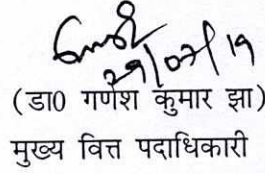 29/07/19
(डा0 गणेश कुमार झा)
मुख्य वित्त पदाधिकारी